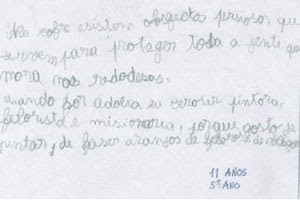 No cofre esistem obgectos persiosos que
servem para proteger toda a jente que
mora nas redodesas.
quando for adoria eu ceroser pintora,
felorista e misionaria, porque gosto de
pintar, de faser aranjos de felores e de
11 ANOS
5º ANO